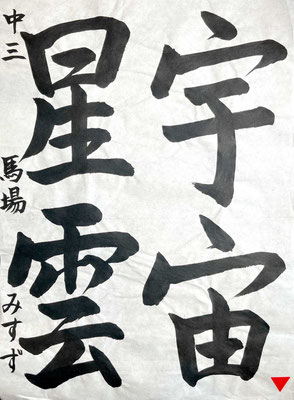 宇宙
星雲
中三 馬場 みすず